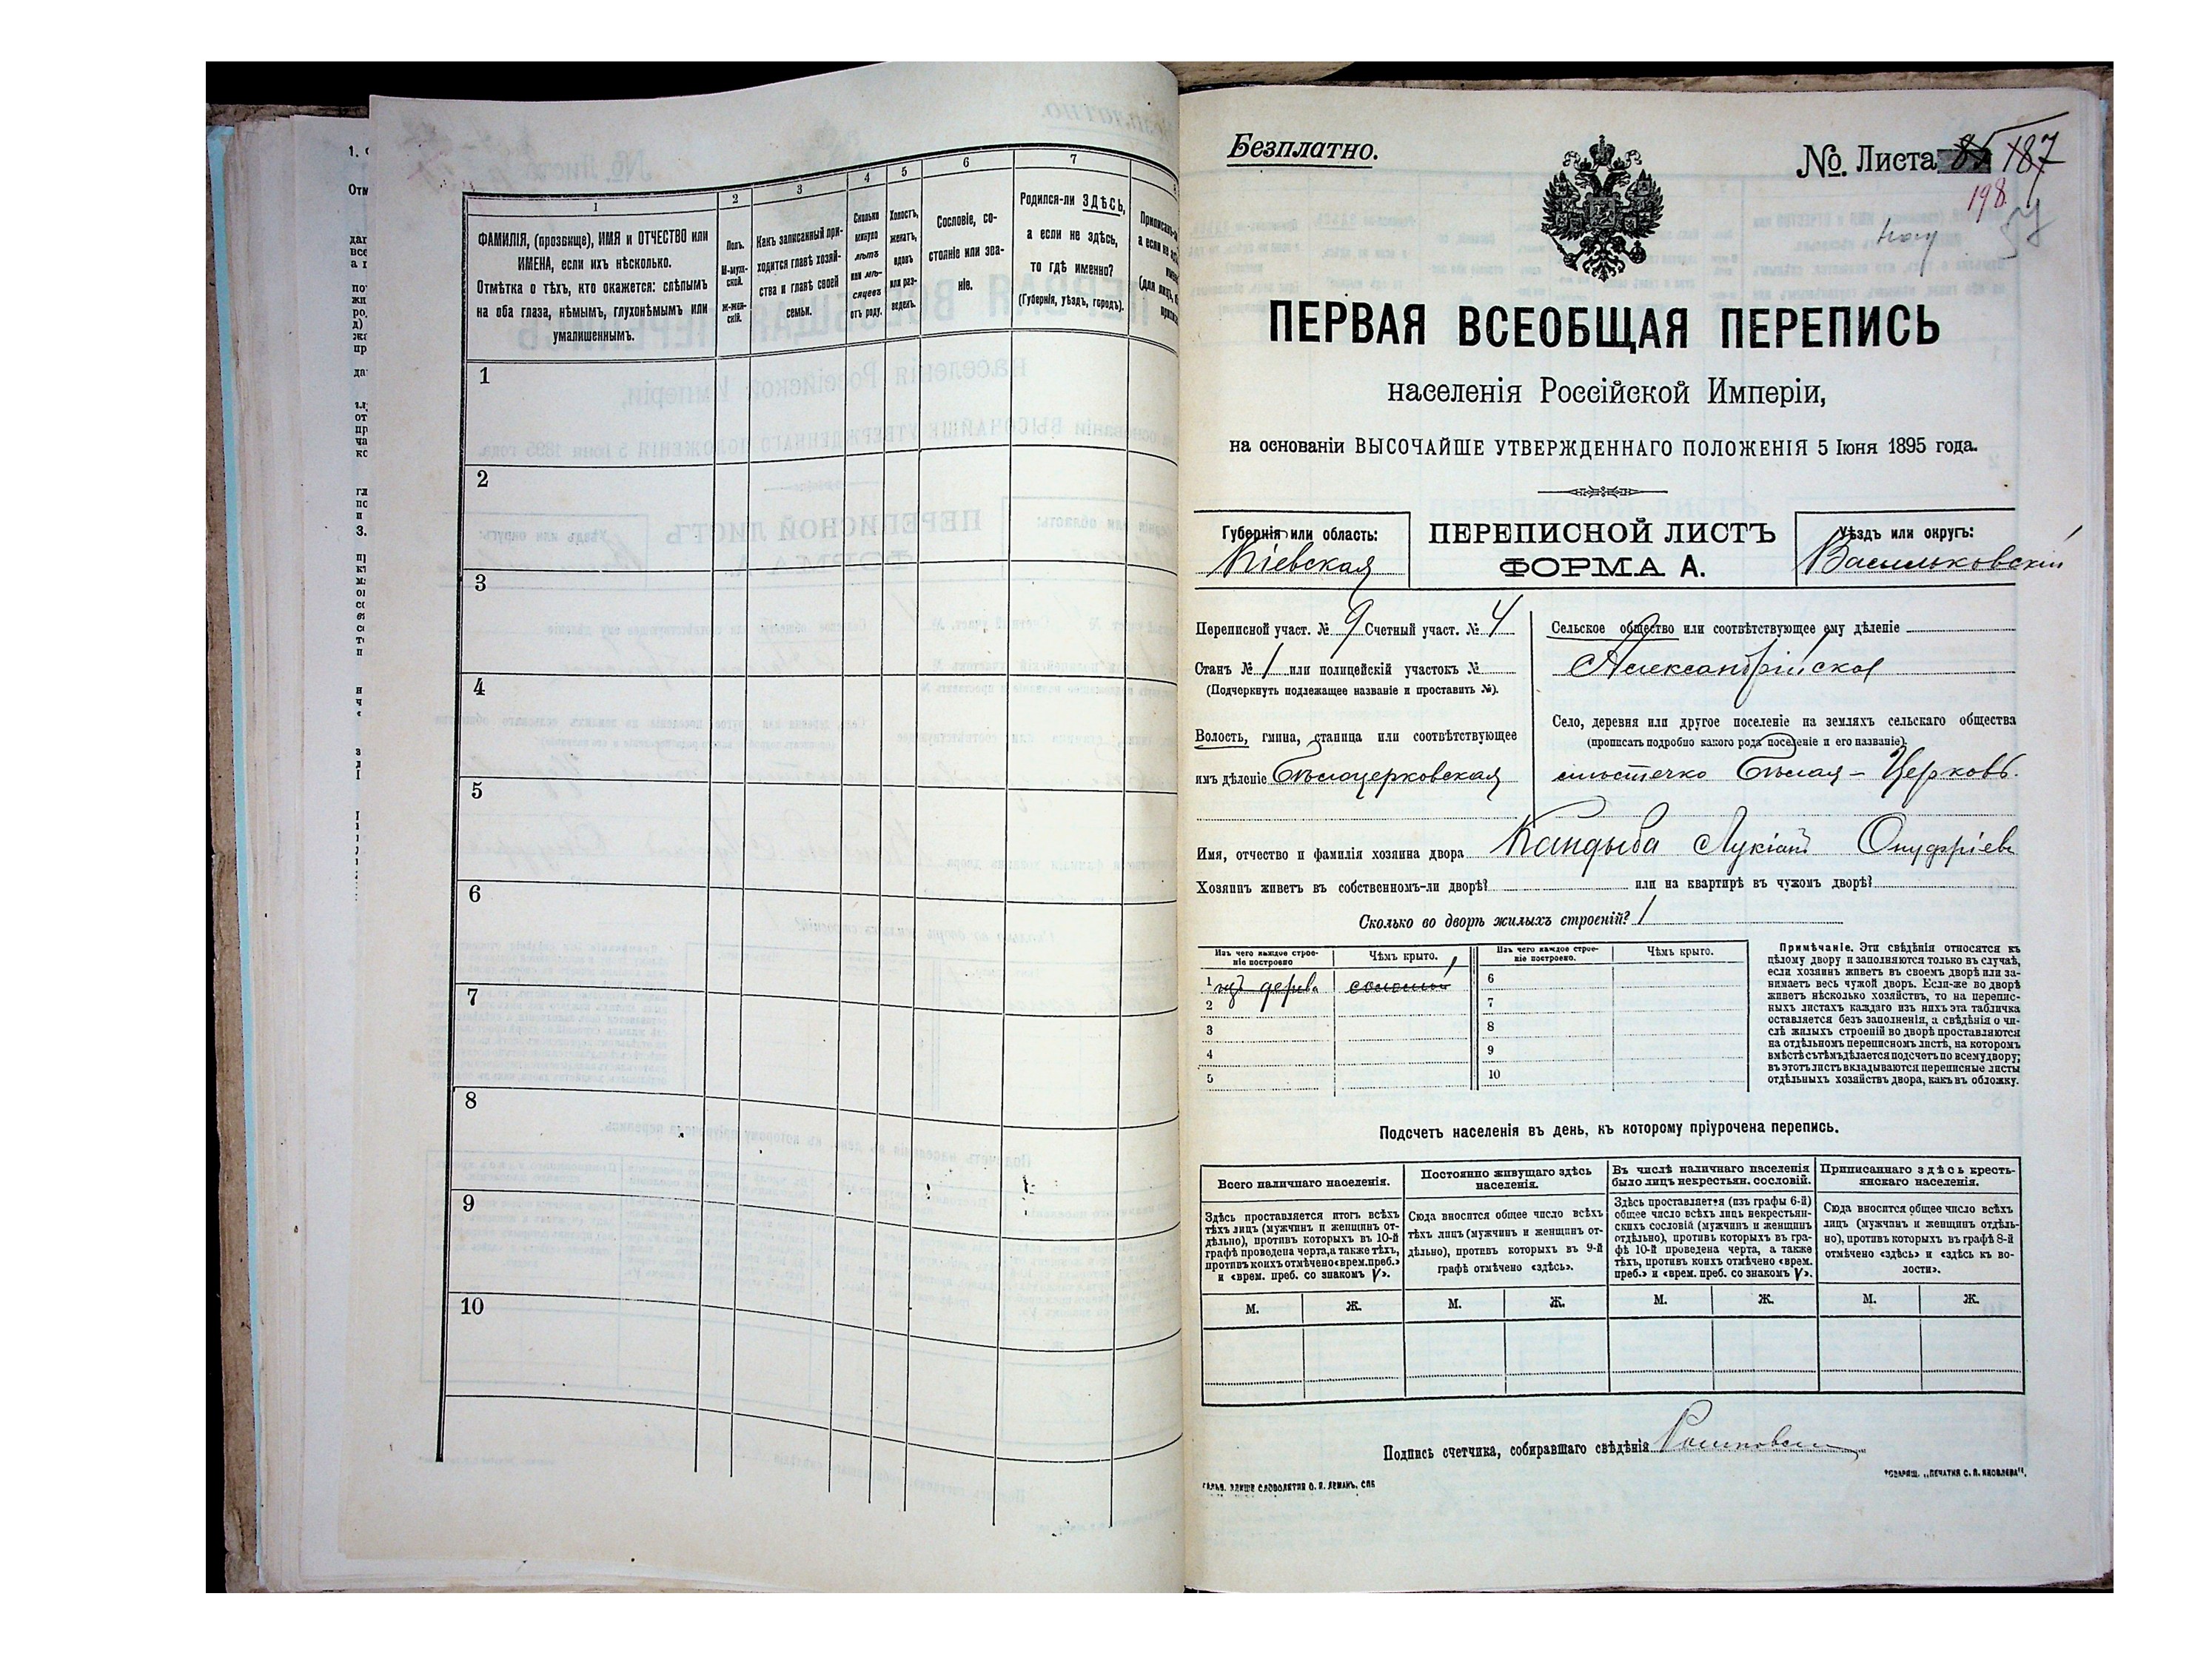 1
2
3
4
5
6
7
ФАМИЛІЯ, (прозвище), ИМЯ и ОТЧЕСТВО или
ИМЕНА, если ихъ нѣсколько.
Отмѣтка о тѣхъ, кто окажется: слѣпымъ
на оба глаза, нѣмымъ, глухонѣмымъ или
умалишеннымъ.
Полъ.
М-муж-
ской.
Ж-жен-
скій.
Какъ записанный при-
ходится главѣ хозяй-
ства и главѣ своей
семьи.
Сколько
минуло
лѣтъ
или мѣ-
сяцевъ
отъ роду.
Холостъ,
женатъ,
вдовъ
или раз-
веденъ.
Сословіе, со-
стояніе или зва-
ніе.
Родился-ли ЗДѢСЬ,
а если не здѣсь,
то гдѣ именно?
(Губернія, уѣздъ, городъ).
1
2
3
4
5
6
7
8
9
10
Безплатно.
№. Листа 187
198
ПЕРВАЯ ВСЕОБЩАЯ ПЕРЕПИСЬ
населенія Россійской Имперіи,
на основаніи ВЫСОЧАЙШЕ УТВЕРЖДЕННАГО ПОЛОЖЕНІЯ 5 Іюня 1895 года.
Губернія или область:
Кіевская
ПЕРЕПИСНОЙ ЛИСТЪ
ФОРМА А.
Уѣздъ или округъ:
Васильковскій
Переписной участ. № 9 Счетный участ. № 4
Станъ № 1 или полицейскій участокъ №
(Подчеркнуть подлежащее названіе и проставить №).
Волость, гмина, станица или соотвѣтствующее
имъ дѣленіе Бѣлоцерковская
Сельское общество или соотвѣтствующее ему дѣленіе
Александрійское
Село, деревня или другое поселеніе на земляхъ сельскаго общества
(прописать подробно какого рода поселеніе и его названіе).
мѣстечко Бѣлая-Церковь.
Имя, отчество и фамилія хозяина двора Кандыба Лукіанъ Онуфріевъ
Хозяинъ живетъ въ собственномъ-ли дворѣ? или на квартирѣ въ чужомъ дворѣ?
Сколько во дворѣ жилыхъ строеній? 1
Изъ чего каждое строе-
ніе построено
Чѣмъ крыто.
Изъ чего каждое строе-
ніе построено.
Чѣмъ крыто.
1 изъ дерева соломой 6
2 7
3 8
4 9
5 10
Примѣчаніе. Эти свѣдѣнія относятся къ
цѣлому двору и заполняются только въ случаѣ,
если хозяинъ живетъ въ своемъ дворѣ или за-
нимаетъ весь чужой дворъ. Если-же во дворѣ
живетъ нѣсколько хозяйствъ, то на перепис-
ныхъ листахъ каждаго изъ нихъ эта табличка
оставляется безъ заполненія, а свѣдѣнія о чи-
слѣ жилыхъ строеній во дворѣ проставляются
на отдѣльномъ переписномъ листѣ, на которомъ
вмѣстѣ съ тѣмъ дѣлается подсчетъ по всему двору;
въ этотъ листъ вкладываются переписные листы
отдѣльныхъ хозяйствъ двора, какъ въ обложку.
Подсчетъ населенія въ день, къ которому пріурочена перепись.
Всего наличнаго населенія.
Здѣсь проставляется итогъ всѣхъ
тѣхъ лицъ (мужчинъ и женщинъ от-
дѣльно), противъ которыхъ въ 10-й
графѣ проведена черта, а также тѣхъ,
противъ коихъ отмѣчено «врем. преб.»
и «врем. преб. со знакомъ V».
Постоянно живущаго здѣсь
населенія.
Сюда вносится общее число всѣхъ
тѣхъ лицъ (мужчинъ и женщинъ от-
дѣльно), противъ которыхъ въ 9-й
графѣ отмѣчено «здѣсь».
Въ числѣ наличнаго населенія
было лицъ некрестьян. сословій.
Здѣсь проставляется (изъ графы 6-й)
общее число всѣхъ лицъ некрестьян-
скихъ сословій (мужчинъ и женщинъ
отдѣльно), противъ которыхъ въ гра-
фѣ 10-й проведена черта, а также
тѣхъ, противъ коихъ отмѣчено «врем.
преб.» и «врем. преб. со знакомъ V».
Приписаннаго здѣсь кресть-
янскаго населенія.
Сюда вносится общее число всѣхъ
лицъ (мужчинъ и женщинъ отдѣль-
но), противъ которыхъ въ графѣ 8-й
отмѣчено «здѣсь» и «здѣсь въ во-
лости».
М. Ж. М. Ж. М. Ж. М. Ж.
Подпись счетчика, собиравшаго свѣдѣнія
ТОВАРИЩ. „ПЕЧАТНЯ С. П. ЯКОВЛЕВА".
СЛОВОЛИТНЯ О. И. ЛЕМАНЪ, СПБ